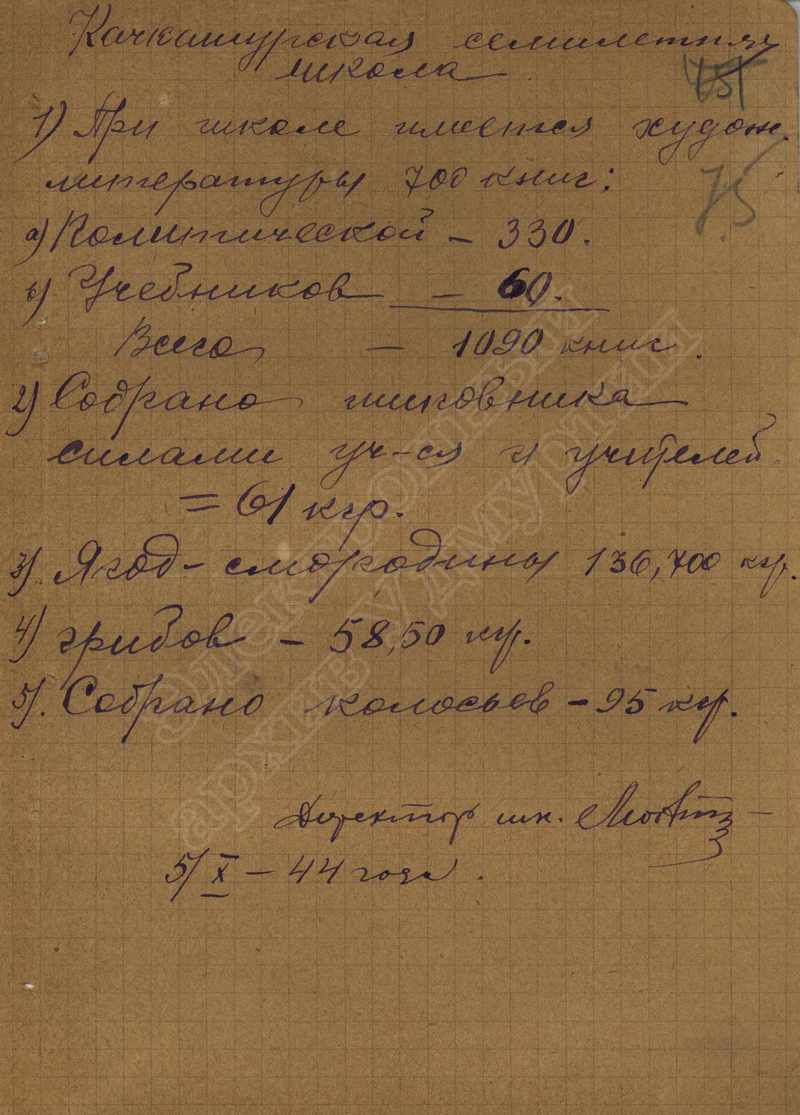 Качкашурская семилетняя
школа
75
1) При школе имеется худож.
литературы 700 книг:
75
а) Политической – 330.
в) Учебников – 60.
Всего – 1090 книг.
2) Собрано шиповника
силами уч-ся и учителей
= 61 кгр.
3). Ягод – смородины 136,700 кгр.
4) грибов – 58,50 кгр.
5). Собрано колосьев – 95 кгр.
Директор шк.
5/X – 44 года.
Электронный
архив Удмуртии